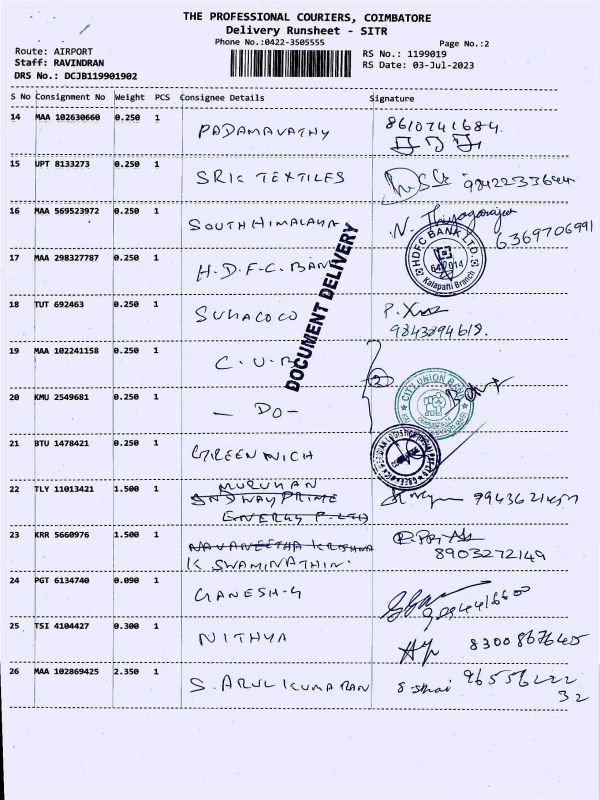 THE PROFESSIONAL COURIERS, COIMBATORE
Delivery Runsheet - SITR
Phone No.:0422-3505555
Page No.:2
Route: AIRPORT
RS No.: 1199019
Staff: RAVINDRAN
RS Date: 03-Jul-2023
DRS No.: DCJB119901902
S No Consignment No Weight PCS Consignee Details Signature
14 MAA 102630660 0.250 1 PADAMAVATHY 8610741684.
15 UPT 8133273 0.250 1 SRIC TEXTILES
16 MAA 569523972 0.250 1 SOUTH HIMALAYA N. Thiyagarajan
6369706991
17 MAA 298327787 0.250 1 H.D.F.C. BANK
HDFC BANK LTD.
Kalapatti Branch
DOCUMENT DELIVERY
18 TUT 692463 0.250 1 SUHACOCO
9843894618.
19 MAA 102241158 0.250 1 C.U.B
20 KMU 2549681 0.250 1 - DO -
2
CITY UNION BANK
21 BTU 1478421 0.250 1 GREENWICH
22 TLY 11013421 1.500 1 MURUHAN
SNDWAY PRIME
ENERGY P. LTD
23 KRR 5660976 1.500 1 NAVANEETHA KRISHNA
K SWAMINATHIN.
8903272149
24 PGT 6134740 0.090 1 GANESH-G
25 TSI 4104427 0.300 1 NITHYA 8300867645
26 MAA 102869425 2.350 1 S. ARULKUMARAN